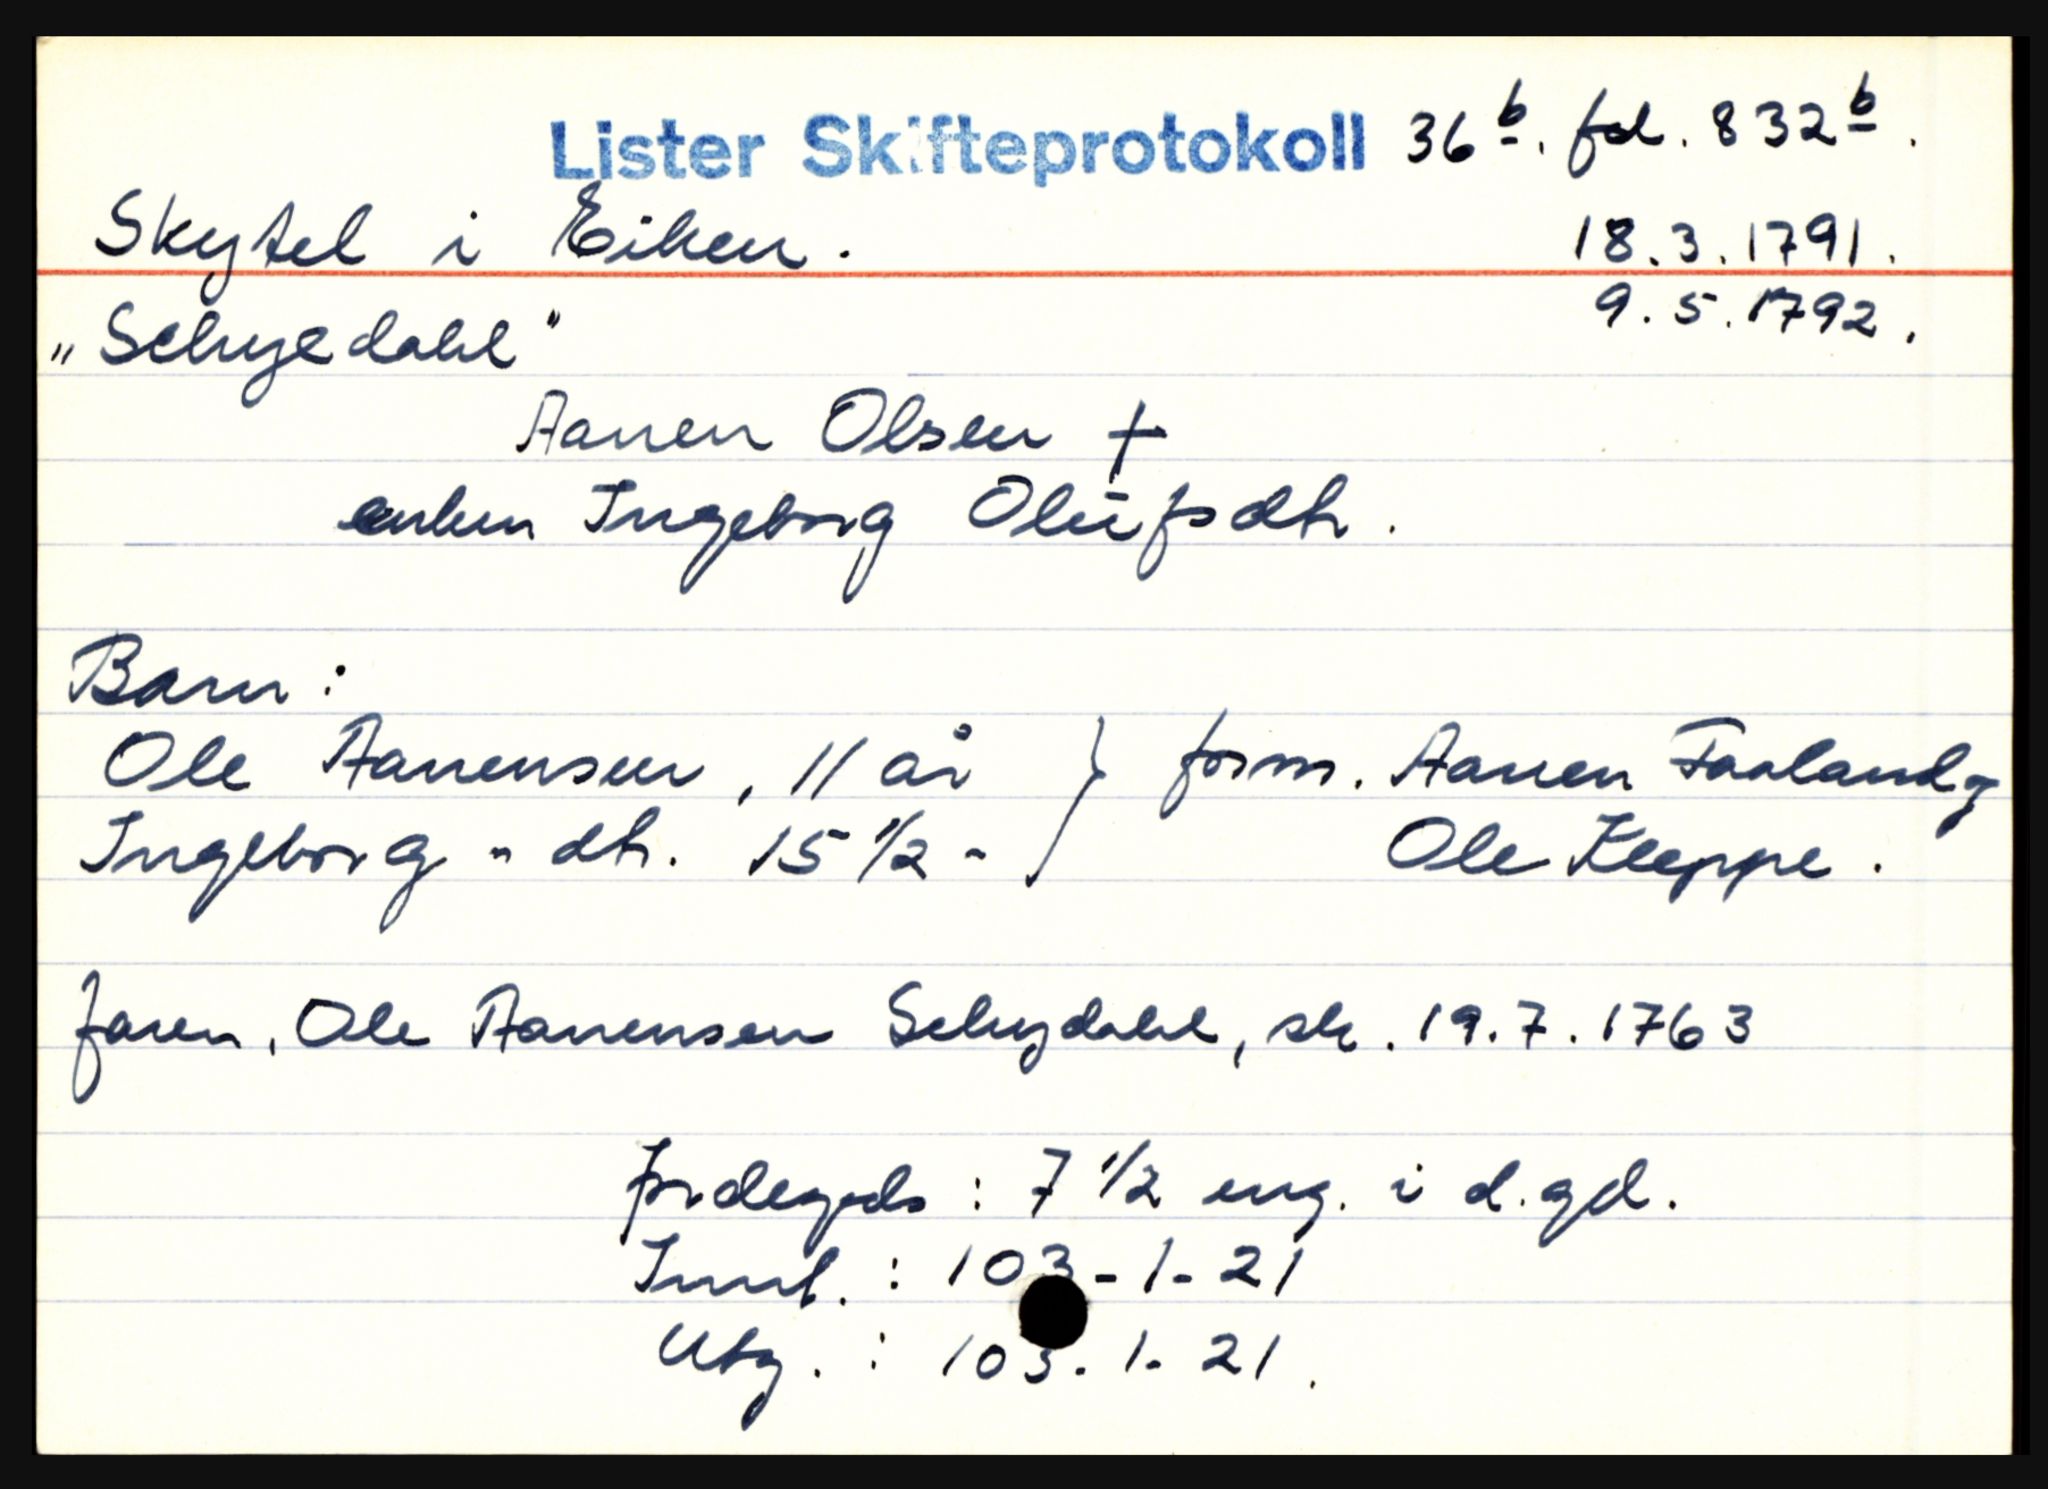 Lister Skifteprotokoll 36 b. fol. 832 b.
Skytel i Eiken. 18.3.1791.
"Schyedahl" 9.5.1792.
Aanen Olsen †
enken Ingeborg Olufsdtr.
Barn:
Ole Aanensen, 11 år } form. Aanen Faaland og
Ingeborg " dtr. 15 1/2 " Ole Kleppe.
faren, Ole Aanensen Schydahl, sk. 19.7.1763
Jordegods: 7 1/2 eng. i d. gd.
Innt.: 103-1-21
Utg.: 103-1-21.